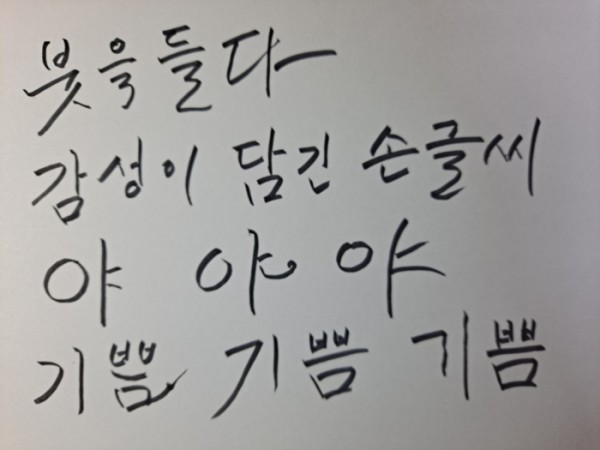 붓을 들다
감성이 담긴 손글씨
야 야 야
기쁨 기쁨 기쁨